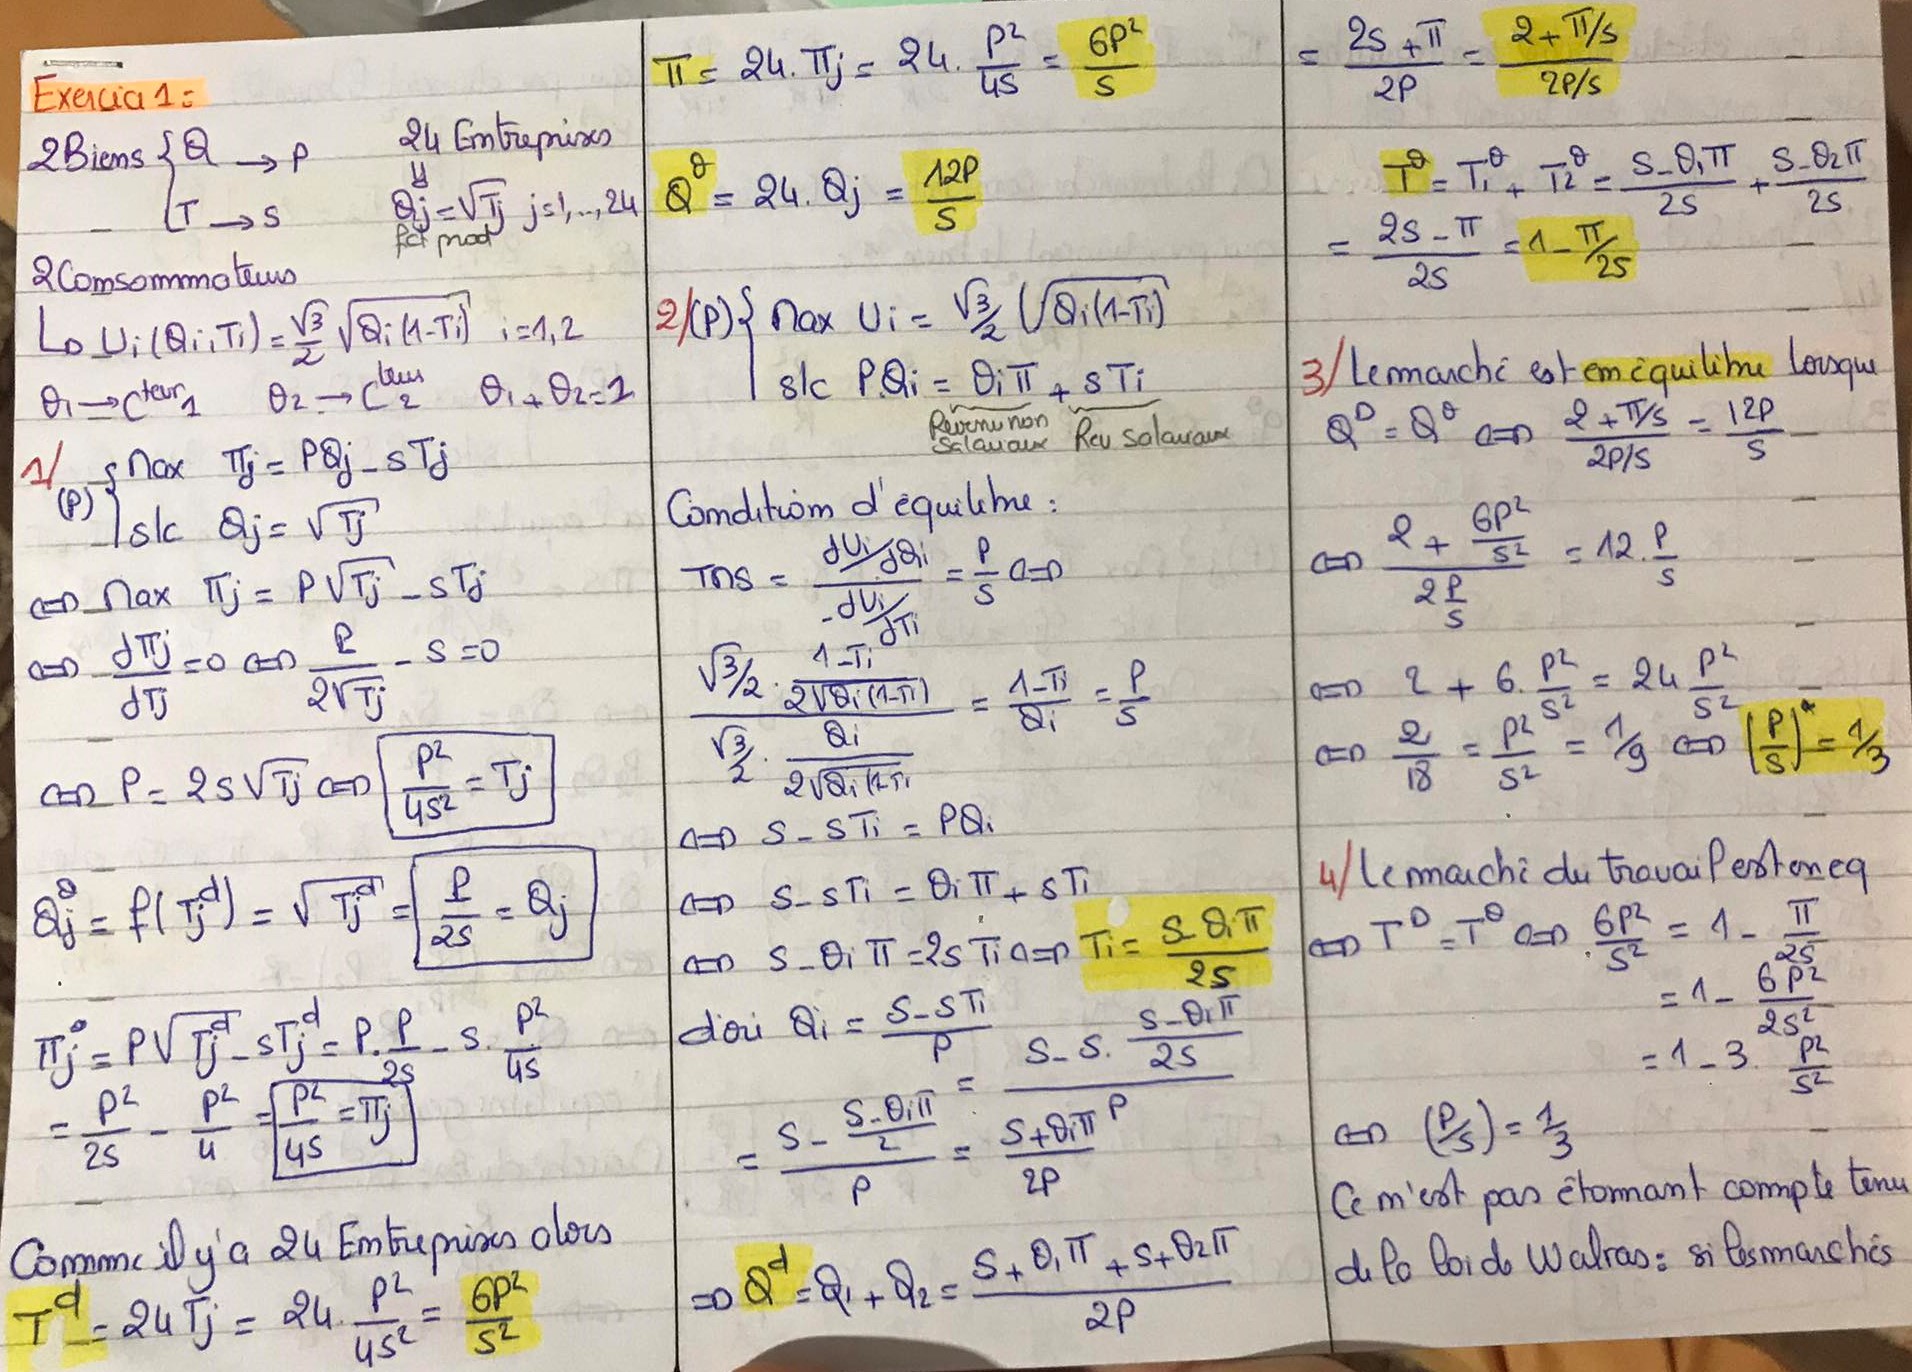 Exercice 1:
2 Biens { Q → P
T → S
24 Entreprises
Qj = √Tj j=1,..,24
fct prod
2 Comsommateurs
Ui(Qi, Ti) = √3/2 √(Qi(1-Ti)) i=1,2
θ1 → Cteur 1 θ2 → Cteur 2 θ1 + θ2 = 1
1/ (P) { Max πj = PQj - sTj
s/c Qj = √Tj
⇔ Max πj = P√Tj - sTj
⇔ dπj/dTj = 0 ⇔ P/(2√Tj) - s = 0
⇔ P = 2s√Tj ⇔ P²/4s² = Tj
Qj° = f(Tj^d) = √(Tj^d) = P/2s = Qj
πj° = P√(Tj^d) - sTj^d = P.P/2s - s.P²/4s
= P²/2s - P²/4 = P²/4s = πj
Comme il y'a 24 Entreprises alors
T^d = 24Tj = 24.P²/4s² = 6P²/s²
π = 24.πj = 24.P²/4s = 6P²/s
Q° = 24.Qj = 12P/s
2/ (P) { Max Ui = √3/2 (√(Qi(1-Ti))
s/c P.Qi = θiπ + sTi
Revenu non salariaux Rev salariaux
Condition d'équilibre :
TMS = (dUi/dQi)/(-dUi/dTi) = P/s ⇔
(√3/2 . (1-Ti)/(2√(Qi(1-Ti))))/(√3/2 . Qi/(2√(Qi(1-Ti) = (1-Ti)/Qi = P/s
⇔ s - sTi = PQi
⇔ s - sTi = θiπ + sTi
⇔ s - θiπ = 2sTi ⇔ Ti = (s-θiπ)/2s
d'où Qi = (s-sTi)/P = (s - s.(s-θiπ)/2s)/P
= (s - (s-θiπ)/2)/P = (s+θiπ)/2P
⇒ Q^d = Q1 + Q2 = (s+θ1π + s+θ2π)/2P
= (2s+π)/2P = (2+π/s)/(2P/s)
T° = T1° + T2° = (s-θ1π)/2s + (s-θ2π)/2s
= (2s-π)/2s = 1 - π/2s
3/ Le marché est en équilibre lorsque
Q^D = Q° ⇔ (2+π/s)/(2P/s) = 12P/s
⇔ (2 + 6P²/s²)/(2P/s) = 12.P/s
⇔ 2 + 6.P²/s² = 24P²/s²
⇔ 2/18 = P²/s² = 1/9 ⇔ (P/s)* = 1/3
4/ Le marché du travail est en eq
⇔ T^D = T° ⇔ 6P²/s² = 1 - π/2s
= 1 - 6P²/2s²
= 1 - 3.P²/s²
⇔ (P/s) = 1/3
Ce n'est pas étonnant compte tenu
de la loi de Walras: si les marchés